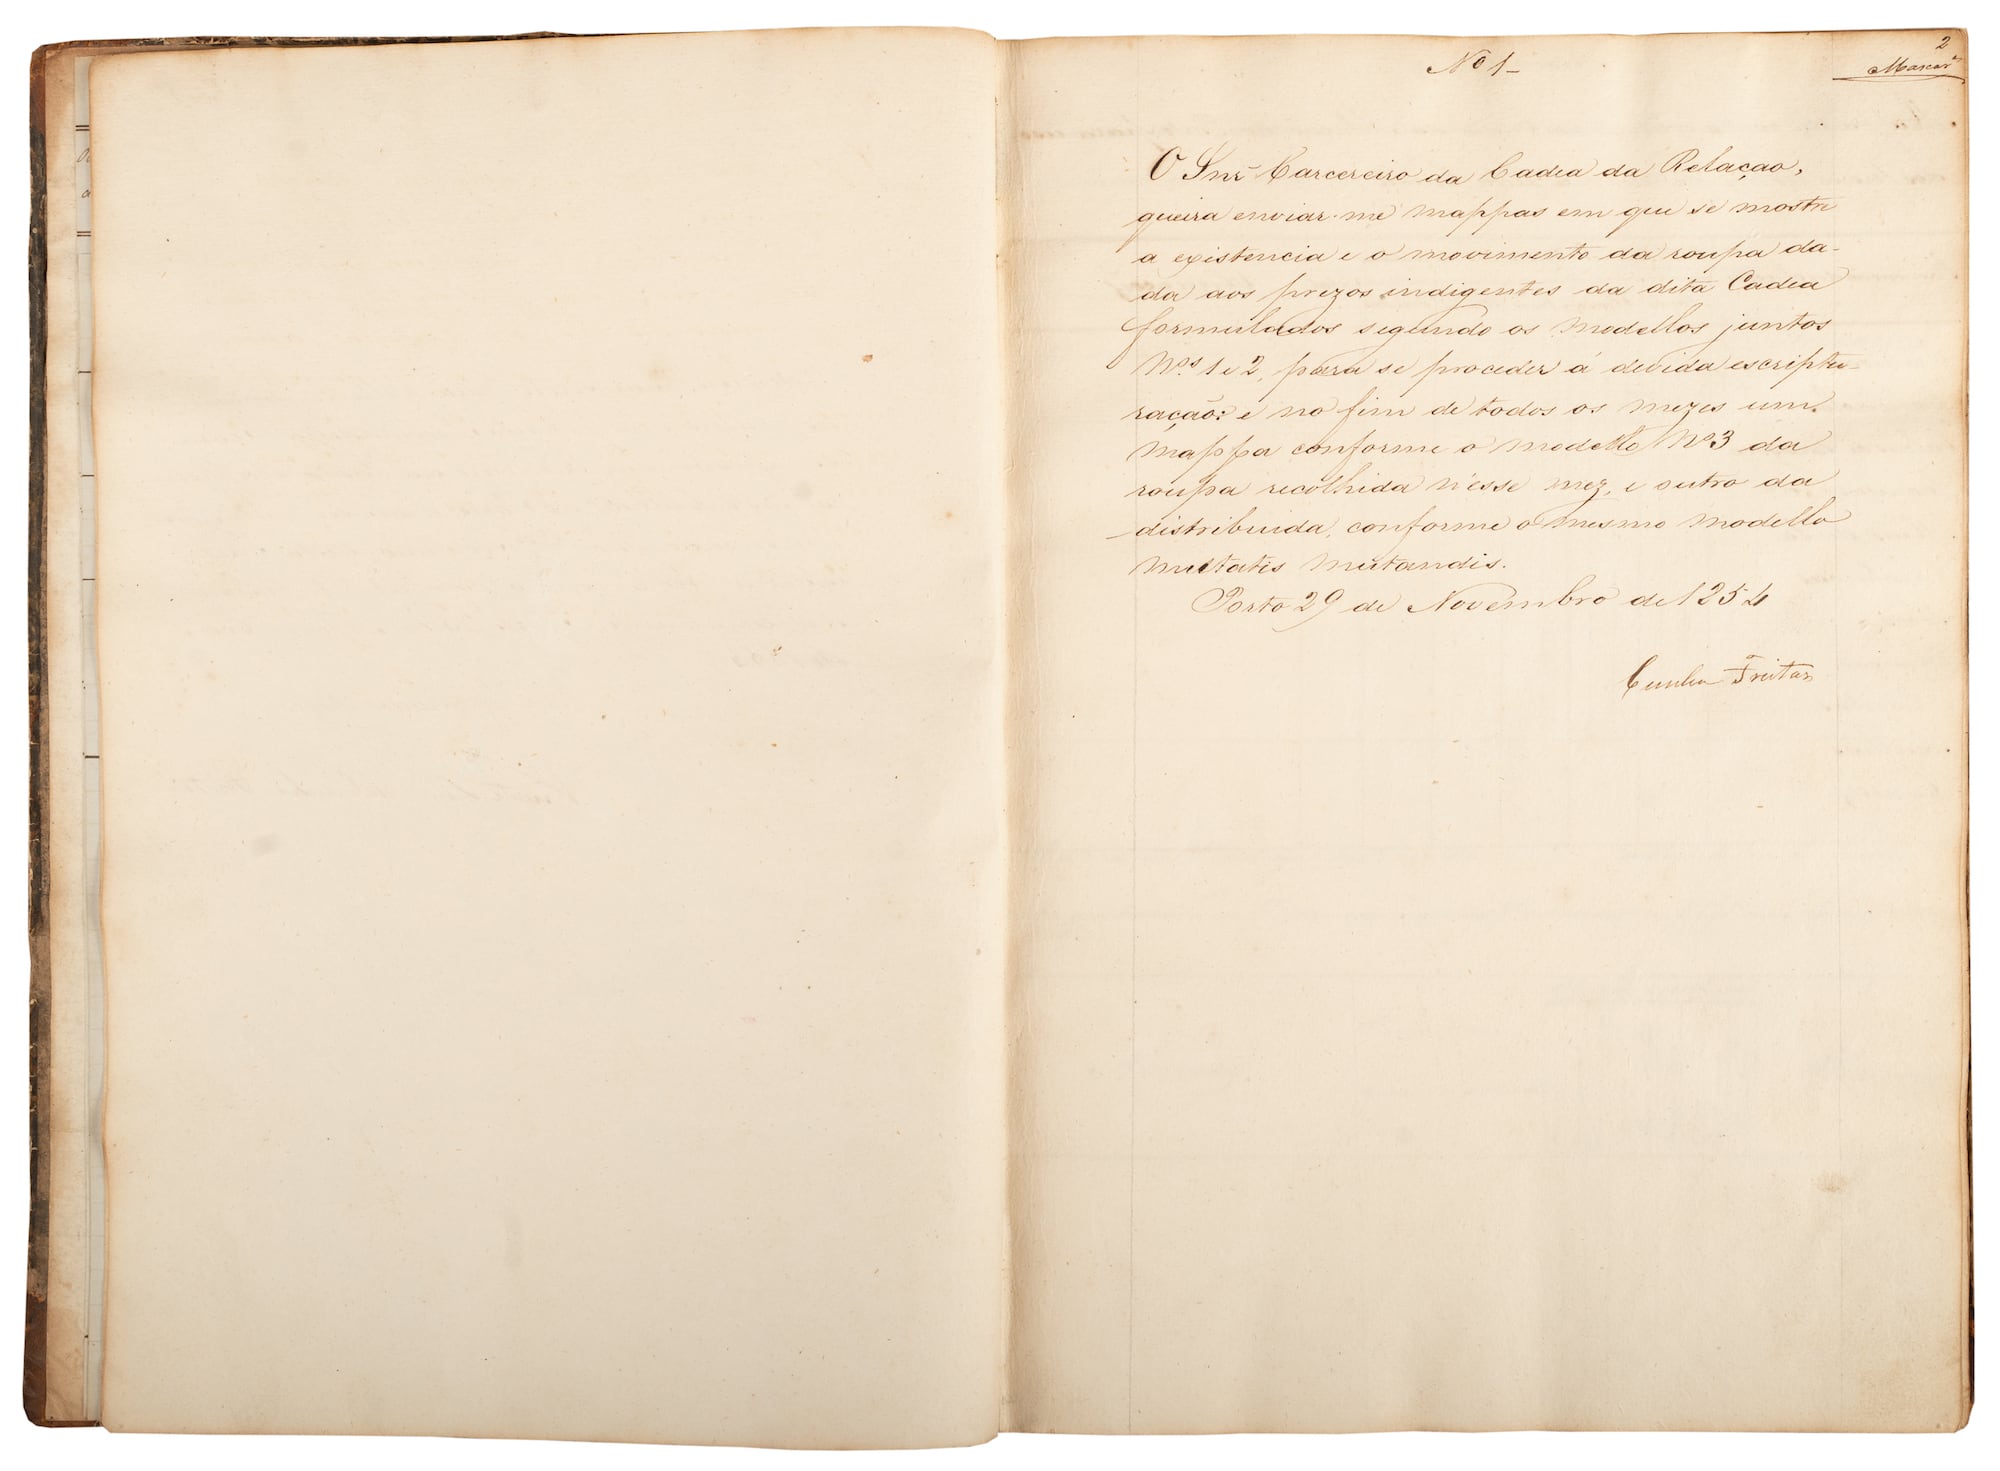 2
Nº 1-
O Snr Carcereiro da Cadea da Relação,
queira enviar-me mappas em que se mostre
a existencia e o movimento da roupa da-
da aos prezos indigentes da dita Cadea
formulados segundo os modellos juntos
Nºs 1 e 2, para se proceder á devida escriptu-
ração: e no fim de todos os mezes um
mappa conforme o modello Nº 3 da
roupa recolhida n'esse mez, e outro da
distribuida, conforme o mesmo modello
mutatis mutandis.
Porto 29 de Novembro de 1854
Cunha Freitas